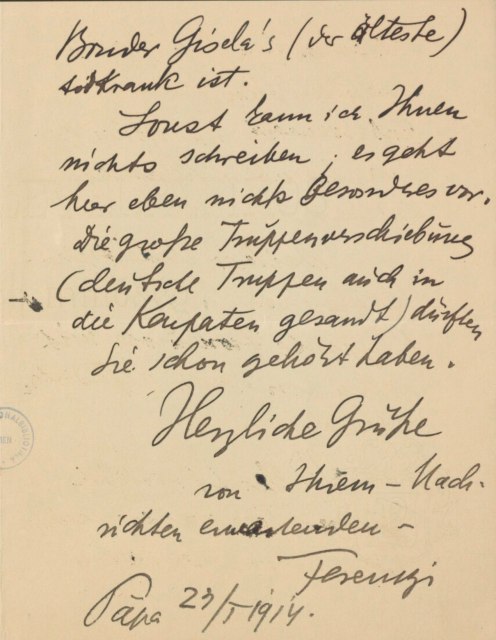 Bruder Gisela's (der älteste)
todkrank ist.
Sonst kann ich Ihnen
nichts schreiben, es geht
hier eben nichts Besondres vor.
Die große Truppenverschiebung
(deutsche Truppen auch in
die Karpaten gesandt) dürften
Sie schon gehört haben.
Herzliche Grüße
von Ihrem – Nach-
richten erwartenden –
Ferenczi
Pápa 23/I 1914.